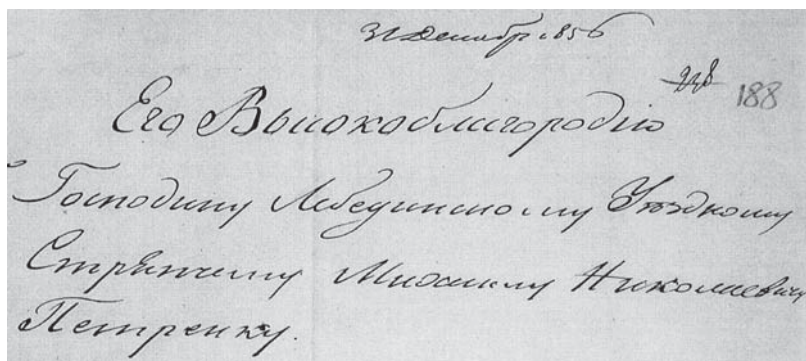 31 Декабр. 1856
248 188
Его Высокоблагородію
Господину Лебединскому Уѣздному
Стряпчему Михаилу Николаевичу
Петренку.